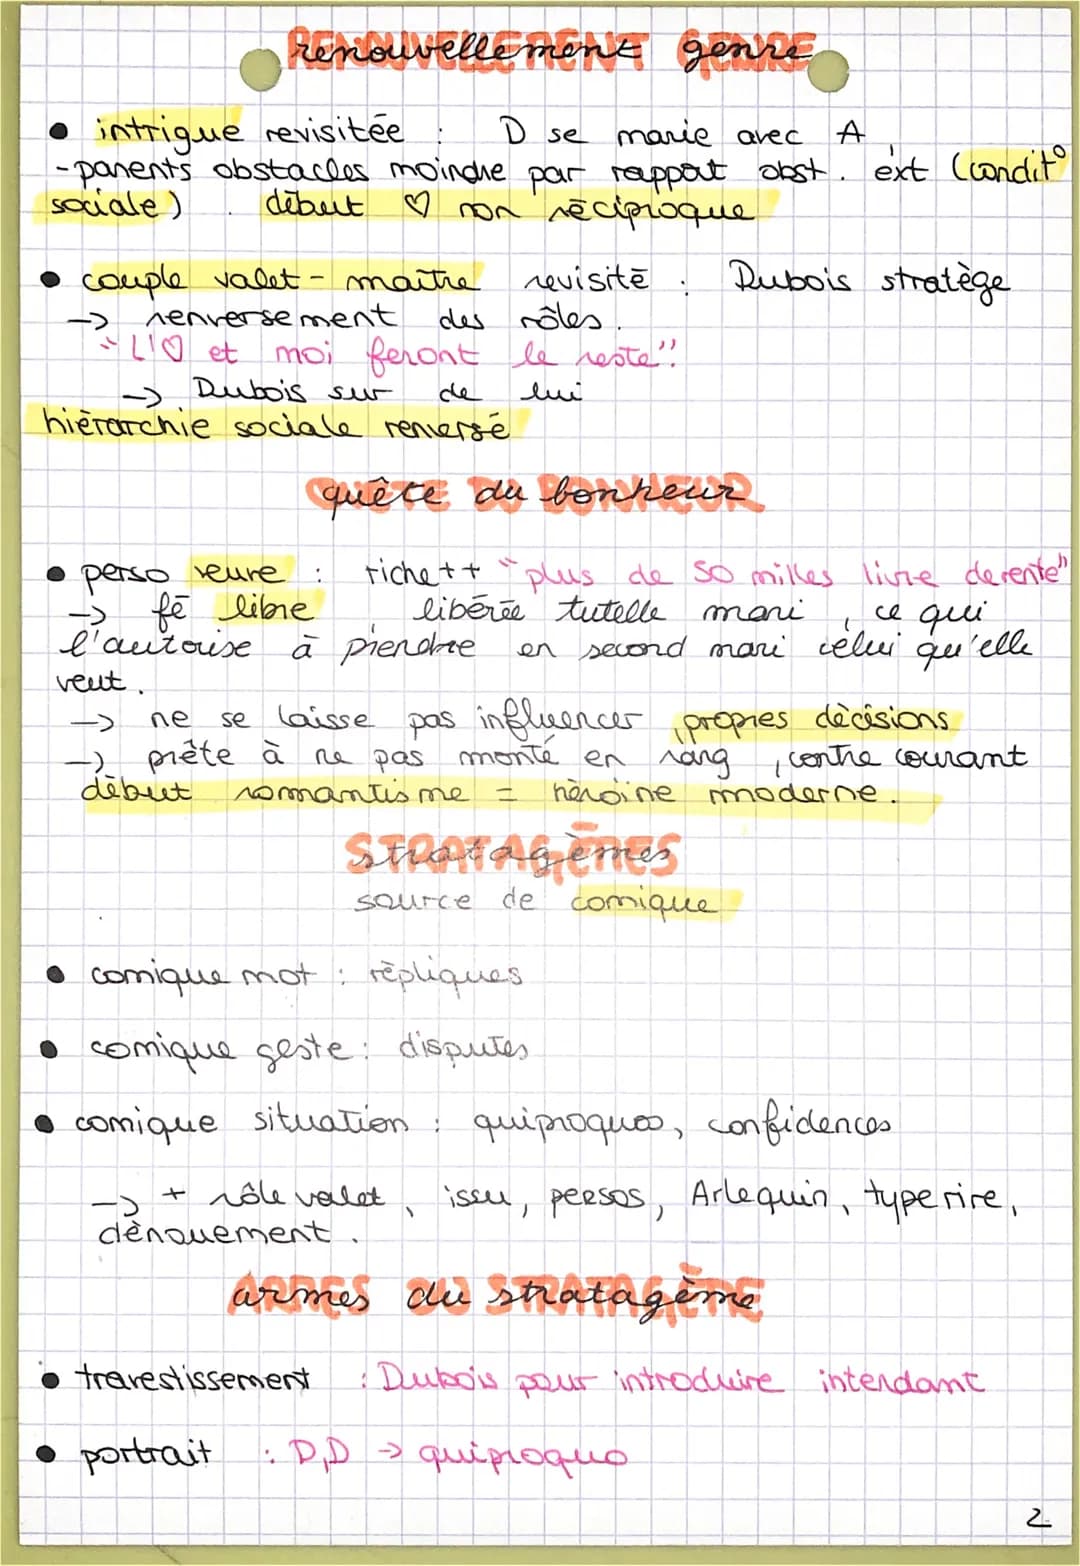 renouvellement genre
• intrigue revisitée : D se marie avec A
- parents obstacles moindre par rapport obst. ext (condit°
sociale) . début ♡ non réciproque
• couple valet - maître revisité : Dubois stratège
-> renversement des rôles.
"L'♡ et moi feront le reste".
-> Dubois sur de lui
hiérarchie sociale renversé
quête du bonheur
• perso veuve : riche++ "plus de 50 milles livre de rente"
-> fē libre, libérée tutelle mari, ce qui
l'autorise à prendre en second mari celui qu'elle
veut.
-> ne se laisse pas influencer, propres décisions
-> prête à ne pas monté en rang, contre courant
début romantisme = héroïne moderne.
stratagèmes
source de comique
• comique mot : répliques
• comique geste : disputes
• comique situation : quiproquos, confidences
-> + rôle valet, issu, persos, Arlequin, type rire,
dénouement.
armes du stratagème
• travestissement : Dubois pour introduire intendant
• portrait : D,D -> quiproquo
2